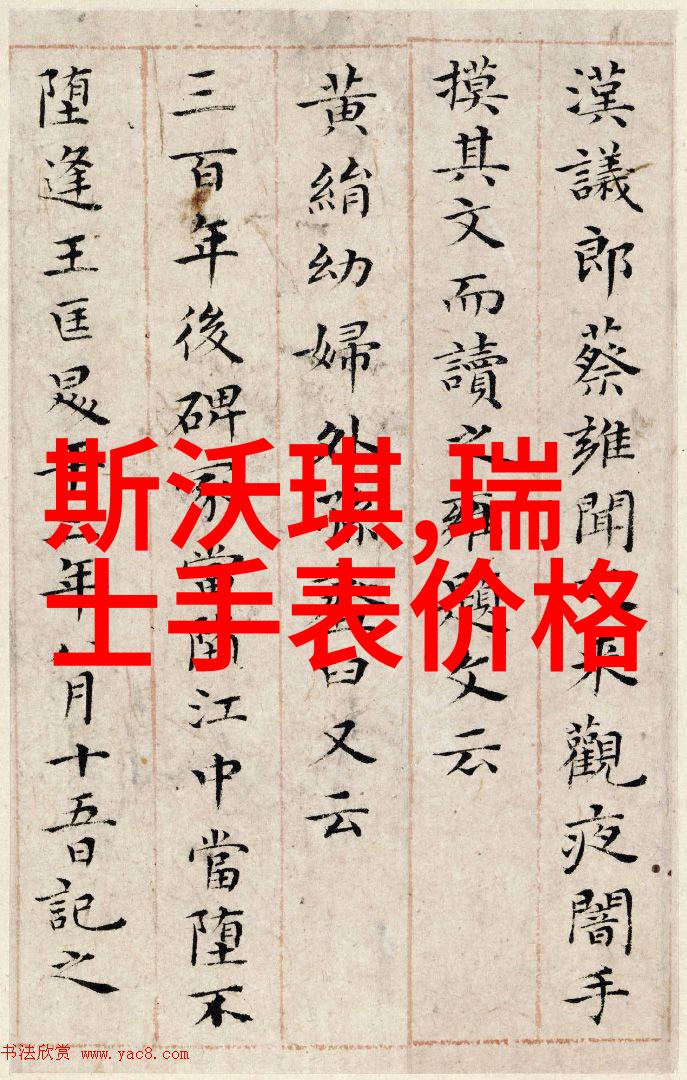 漢議郎蔡雍聞来觀夜闇手
摸其文而讀之雍題文云
黄絹幼婦外孫臼又云
三百年後碑冢當堕江中當堕不
堕逢王匡年八月十五日記之
斯沃琪,瑞
士手表价格
书法欣赏 www.yac8.com